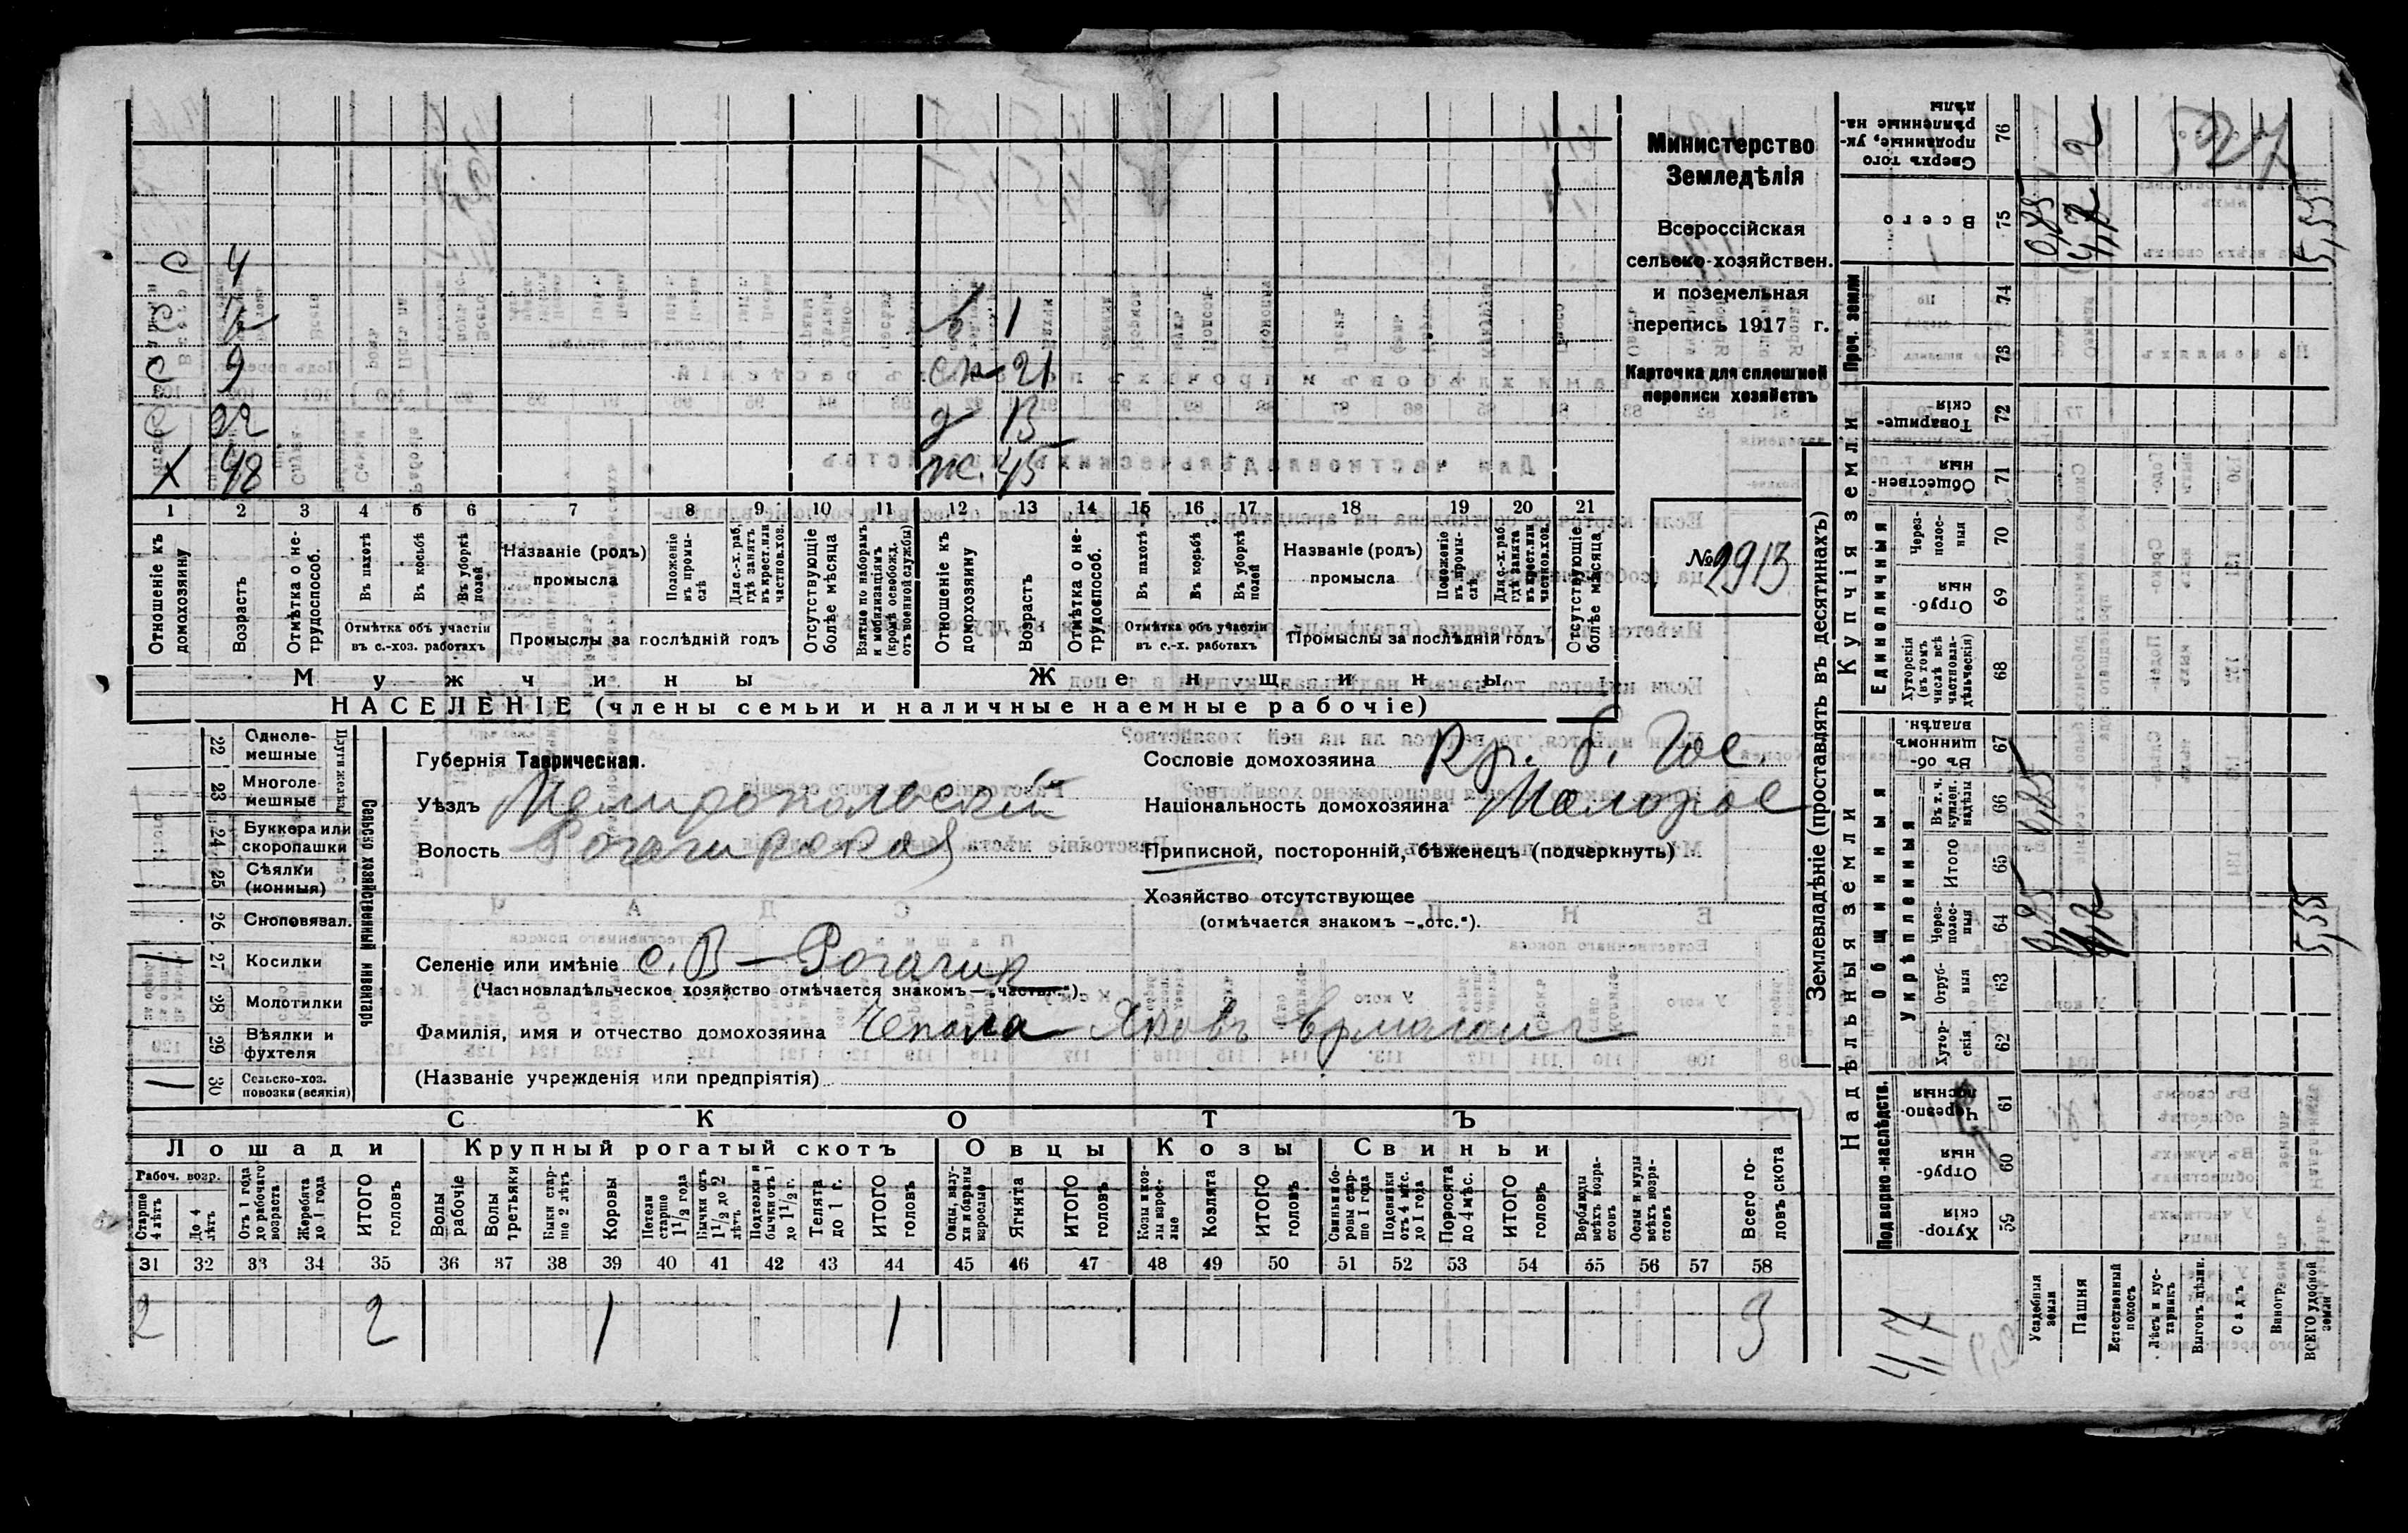 Министерство
Земледѣлія
Всероссійская
сельско-хозяйствен.
и поземельная
перепись 1917 г.
Карточка для сплошной
переписи хозяйствъ
№ 2913
С 4
С
С 9
С 22
Х 48
1
ск 21
д 13
ж. 45
1 2 3 4 5 6 7 8 9 10 11 12 13 14 15 16 17 18 19 20 21
Отношеніе къ домохозяину
Возрастъ
Отмѣтка о не-трудоспособ.
Въ пахотѣ
Въ косьбѣ
Въ уборкѣ полей
Отмѣтка объ участіи въ с.-хоз. работахъ
Названіе (родъ) промысла
Положеніе въ промы-слѣ
Для с.-х. раб. гдѣ занятъ въ крест. или частнов. хоз.
Промыслы за послѣдній годъ
Отсутствующіе болѣе мѣсяца
Взятые по наборамъ и мобилизаціямъ (кромѣ освобожд. отъ военной службы)
Отношеніе къ домохозяину
Возрастъ
Отмѣтка о не-трудоспособ.
Въ пахотѣ
Въ косьбѣ
Въ уборкѣ полей
Отмѣтка объ участіи въ с.-х. работахъ
Названіе (родъ) промысла
Положеніе въ промы-слѣ
Для с.-х. раб. гдѣ занята въ крест. или частнов. хоз.
Промыслы за послѣдній годъ
Отсутствующіе болѣе мѣсяца
Мужчины
Женщины
НАСЕЛЕНІЕ (члены семьи и наличные наемные рабочіе)
Сельско-хозяйственный инвентарь
22 Одноле-мешные
23 Многоле-мешные
24 Буккера или скоропашки
25 Сѣялки (конныя)
26 Сноповязал.
27 Косилки 1
28 Молотилки
29 Вѣялки и фухтеля
30 Сельско-хоз. повозки (всякія) 1
Губернія Таврическая.
Уѣздъ Мелитопольскій
Волость Рогачикская
Селеніе или имѣніе с. В-Рогачик
(Частновладѣльческое хозяйство отмѣчается знакомъ—„частн.“)
Фамилія, имя и отчество домохозяина Чепала Яковъ Ермолаи
(Названіе учрежденія или предпріятія)
Сословіе домохозяина Кр. б. Гос.
Національность домохозяина Малорос
Приписной, посторонній, бѣженецъ (подчеркнуть)
Хозяйство отсутствующее
(отмѣчается знакомъ —„отс.“).
СКОТЪ
Лошади Крупный рогатый скотъ Овцы Козы Свиньи
Рабоч. возр.
Старше 4 лѣтъ
До 4 лѣтъ
Отъ 1 года до рабочаго возраста
Жеребята до 1 года
ИТОГО головъ
Волы рабочіе
Волы третьяки
Быки стар-ше 2 лѣтъ
Коровы
Нетели старше 1 1/2 года
Бычки отъ 1 1/2 до 2 лѣтъ
Подтелки и бычки отъ 1 до 1 1/2 г.
Телята до 1 г.
ИТОГО головъ
Овцы, валу-хи и бараны взрослые
Ягнята
ИТОГО головъ
Козы и коз-лы взрос-лые
Козлята
ИТОГО головъ
Свиньи и бо-ровы стар-ше 1 года
Подсвинки отъ 4 мѣс. до 1 года
Поросята до 4 мѣс.
ИТОГО головъ
Верблюды всѣхъ возра-стовъ
Ослы и мулы всѣхъ возра-стовъ
Всего го-ловъ скота
31 32 33 34 35 36 37 38 39 40 41 42 43 44 45 46 47 48 49 50 51 52 53 54 55 56 57 58
2 2 1 1 3
Землевладѣніе (проставлять въ десятинахъ)
Надѣльныя земли
Купчія земли
Проч. земли
Подворно-наслѣдств.
Общинныя
Укрѣпленныя
Единоличныя
59 Хутор-скія
60 Отруб-ныя
61 Черезпо-лосныя
62 Хутор-скія
63 Отруб-ныя
64 Через-полос-ныя
65 Итого
66 Въ т. ч. куплен. надѣлы
67 Въ об-щинномъ владѣн.
68 Хуторскія (въ томъ числѣ всѣ частновла-дѣльческія)
69 Отруб-ныя
70 Через-полос-ныя
71 Обществен-ныя
72 Товарище-скія
73
74
75 Всего
76 Сверхъ того проданные, ук-рѣпленные на-дѣлы
Усадебныя земли
Пашня
Естественный покосъ
Лѣсъ и кус-тарникъ
Выгонъ цѣлин.
Садъ
Виноград.
ВСЕГО удобной земли
0,85
4,7
5,55
5,55
4,7
2